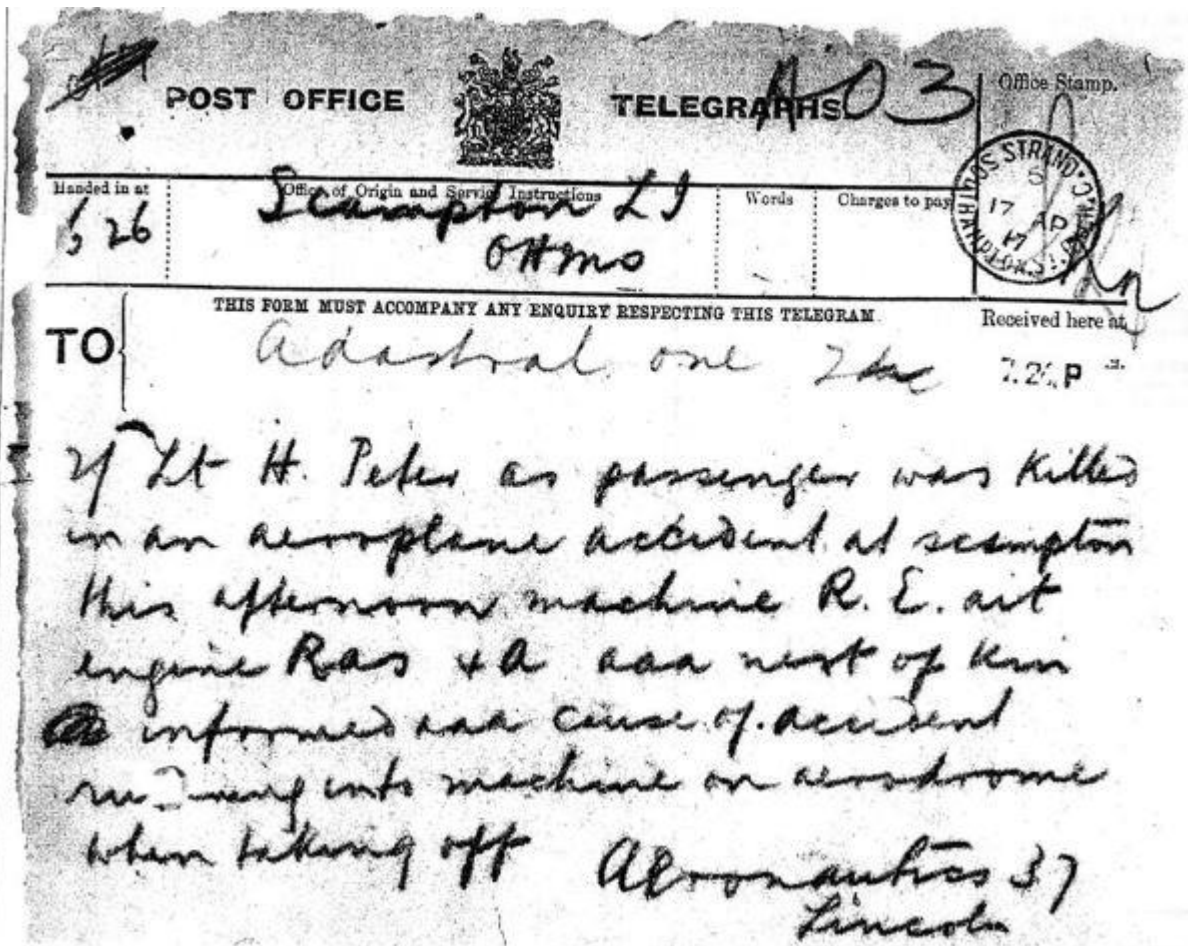 POST OFFICE TELEGRAPHS. A03
Office Stamp.
Handed in at
Office of Origin and Service Instructions
Words
Charges to pay
6 26
Scampton LI
OHMS
STRAND
17 AP
17
THIS FORM MUST ACCOMPANY ANY ENQUIRY RESPECTING THIS TELEGRAM.
Received here at
TO
Adastral one
7.26 P
2/ Lt H. Peter as passenger was killed
in an aeroplane accident at scampton
this afternoon machine R. E. ait
engine Ras 4A aaa next of kin
informed aaa cause of accident
running into machine on aerodrome
when taking off
Aeronautics 37
Lincoln